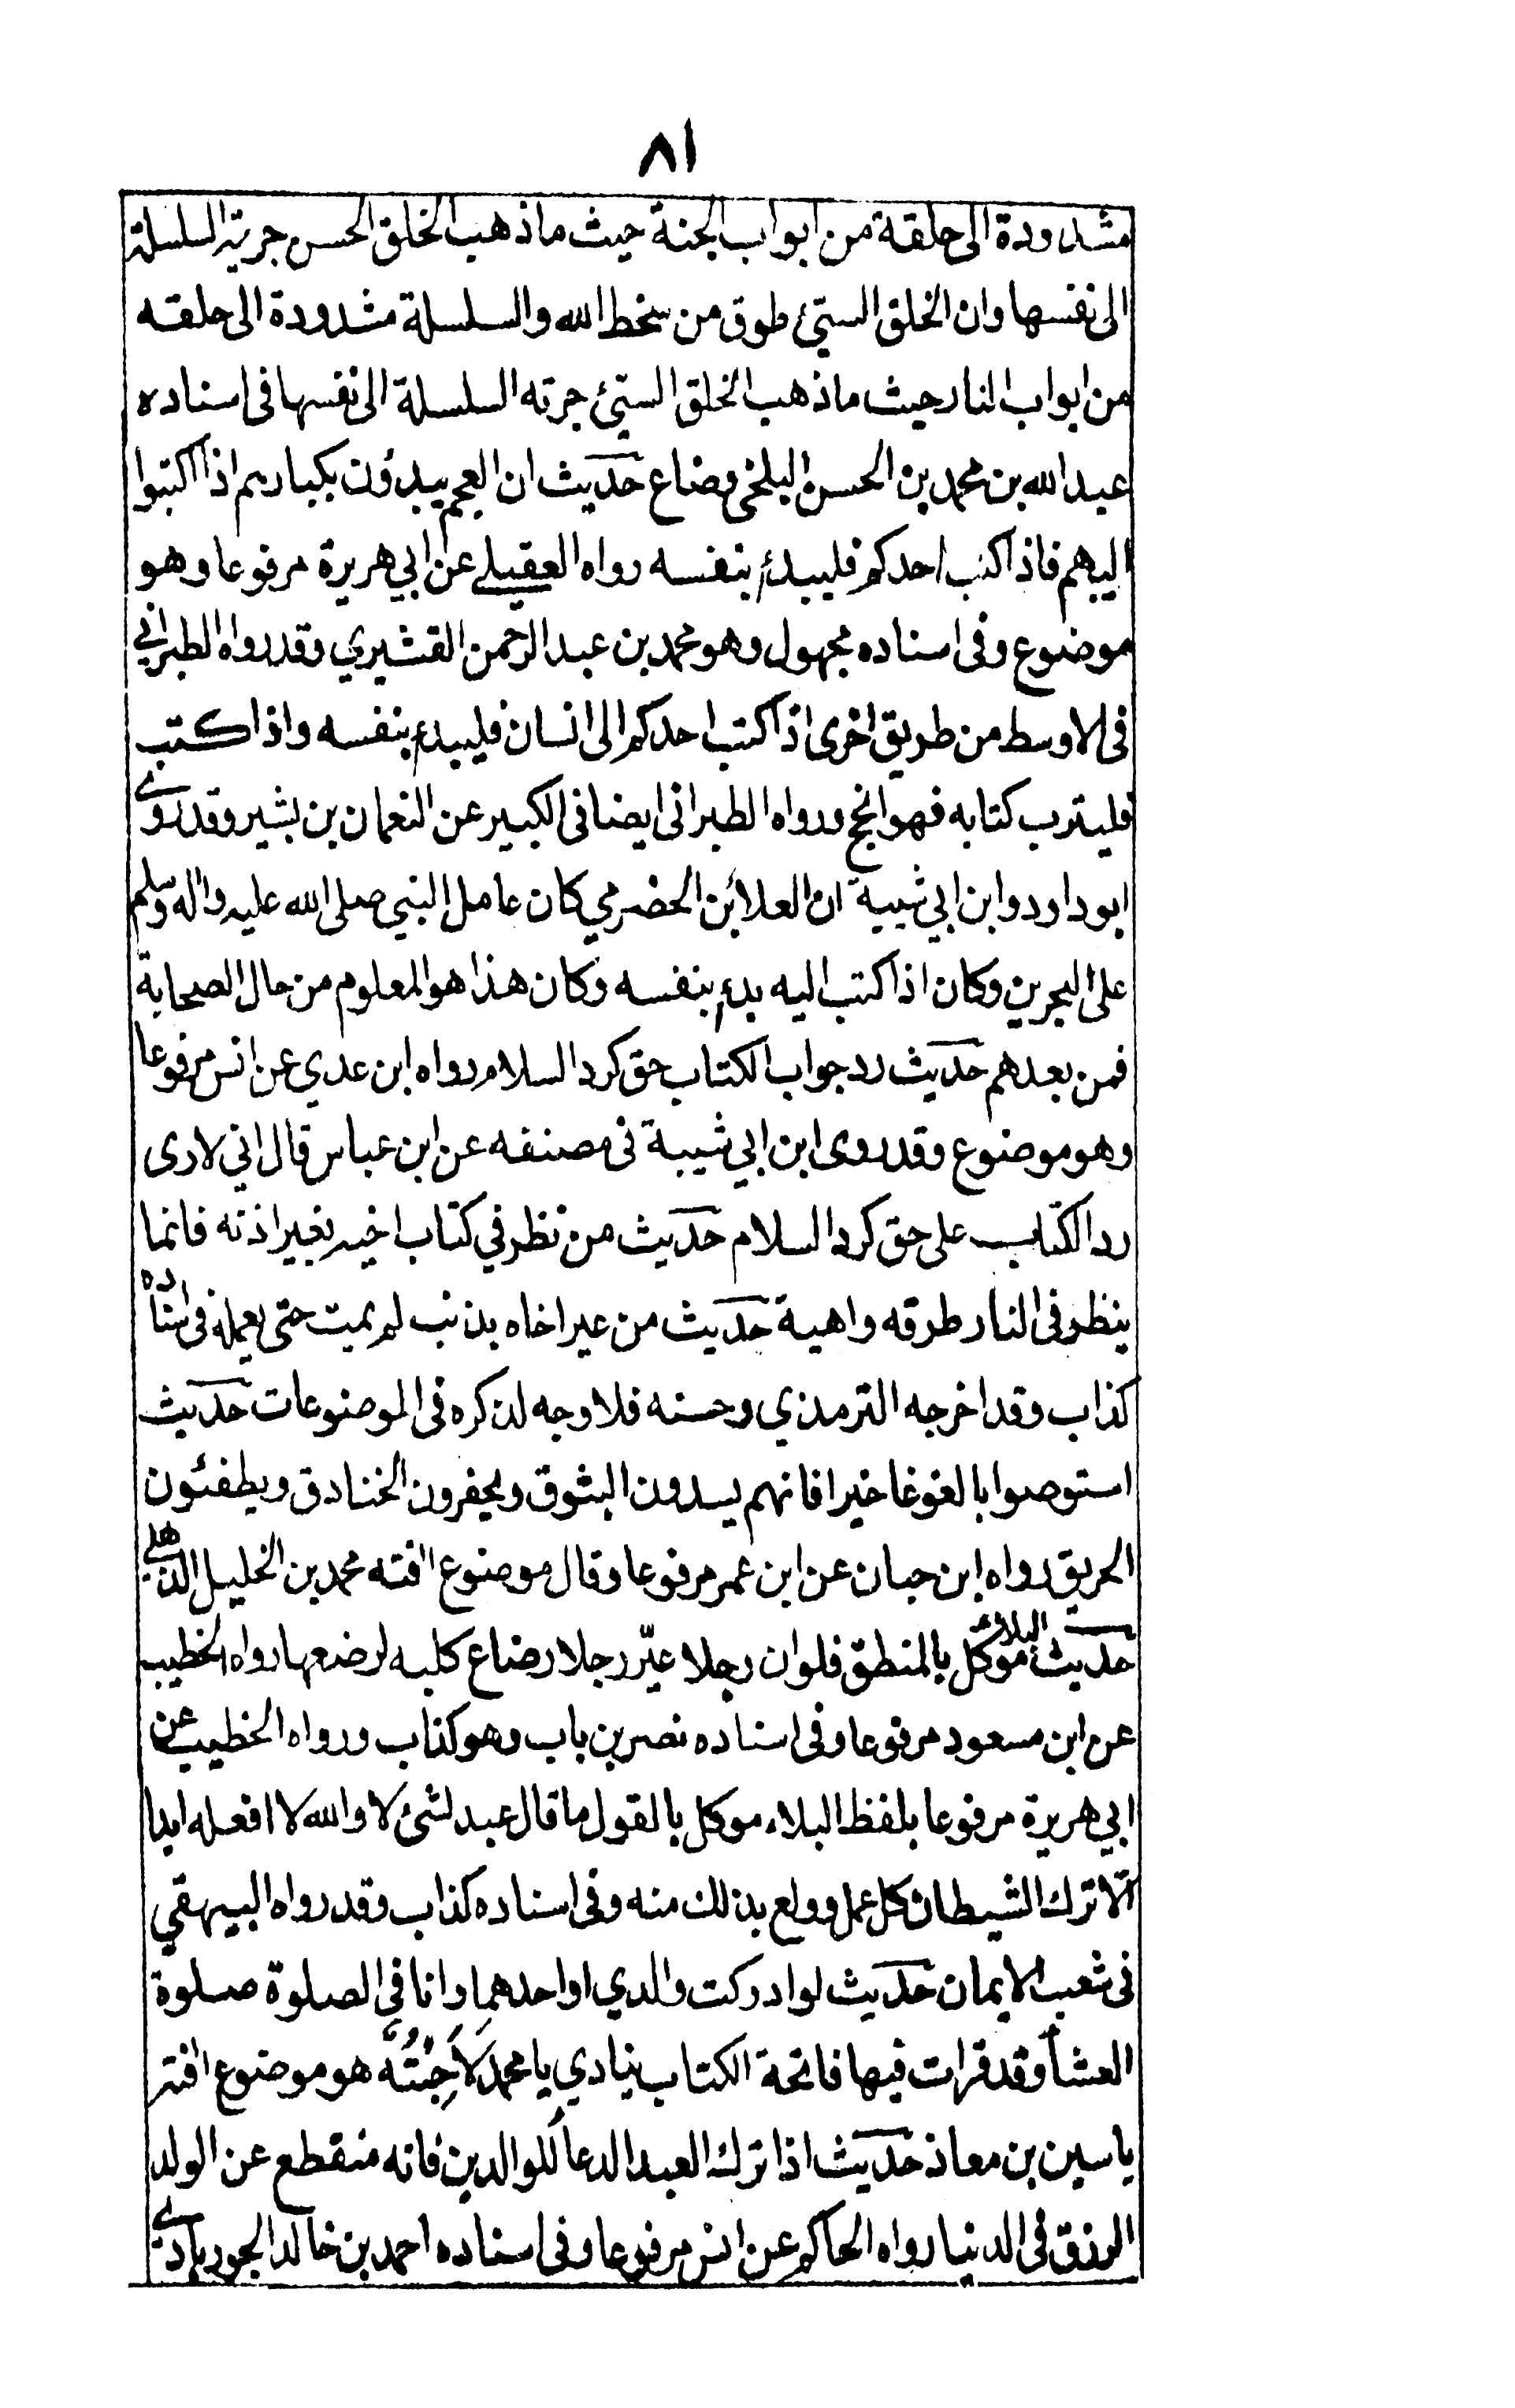 ٨١
مشدودة الى حلقة من ابواب الجنة حيث ما ذهب الخلق الحسن جرته السلسلة
الى نفسها وان الخلق السيئ طوق من سخط الله والسلسلة مشدودة الى حلقه
من ابواب النار حيث ما ذهب الخلق السيئ جرته السلسلة الى نفسها فى اسناده
عبد الله بن محمد بن الحسن البلخى وضاع حديث ان العجم يبدؤن بكبارهم اذا اكتبوا
اليهم فاذا كتب احدكم فليبدء بنفسه رواه العقيلے عن ابي هريرة مرفوعا وهو
موضوع وفى اسناده مجهول وهو محمد بن عبد الرحمن القشيري وقد رواه الطبراني
فى الاوسط من طريق اخرى اذا كتب احدكم الى انسان فليبدء بنفسه واذا كتب
فليترب كتابه فهو انجح ورواه الطبرانى ايضا فى الكبير عن النعمان بن بشير وقد روے
ابو داود وابن ابي شيبة ان العلاء بن الحضرمي كان عامل النبي صلى الله عليه واله وسلم
على البحرين وكان اذا كتب اليه بدء بنفسه وكان هذا هو المعلوم من حال الصحابة
فمن بعدهم حديث رد جواب الكتاب حق كرد السلام رواه ابن عدي عن انس مرفوعا
وهو موضوع وقد روى ابن ابي شيبة فى مصنفه عن ابن عباس قال اني لارى
رد الكتاب على حق كرد السلام حديث من نظر في كتاب اخيه بغير اذنه فانما
ينظر فى النار طرقه واهية حديث من عير اخاه بذنب لم يمت حتى يعمله فى اسناده
كذاب وقد اخرجه الترمذي وحسنه فلا وجه لذكره فى الموضوعات حديث
استوصوا بالغوغا خيرا فانهم يسدون البثوق ويحفرون الخنادق ويطفئون
الحريق رواه ابن حبان عن ابن عمر مرفوعا وقال موضوع افته محمد بن الخليل الذهلے
حديث البلاء موكل بالمنطق فلو ان رجلا عيّر رجلا رضاع كلبه لرضعها رواه الخطيب
عن ابن مسعود مرفوعا وفى اسناده نصر بن باب وهو كذاب ورواه الخطيب عن
ابي هريرة مرفوعا بلفظ البلاء موكل بالقول ما قال عبد لشئ لا والله لا افعله ابدا
الا ترك الشيطان كل عمل وولع بذلك منه وفى اسناده كذاب وقد رواه البيهقي
فى شعب الايمان حديث لو ادركت والدي او احدهما وانا في الصلوة صلوة
العشاء وقد قرات فيها فاتحة الكتاب ينادي يا محمد لَاَجِبْتُهُ هو موضوع افته
ياسين بن معاذ حديث اذا ترك العبد الدعا للوالدين فانه منقطع عن الولد
الرزق فى الدنيا رواه الحاكم عن انس مرفوعا وفى اسناده احمد بن خالد الجويبادے